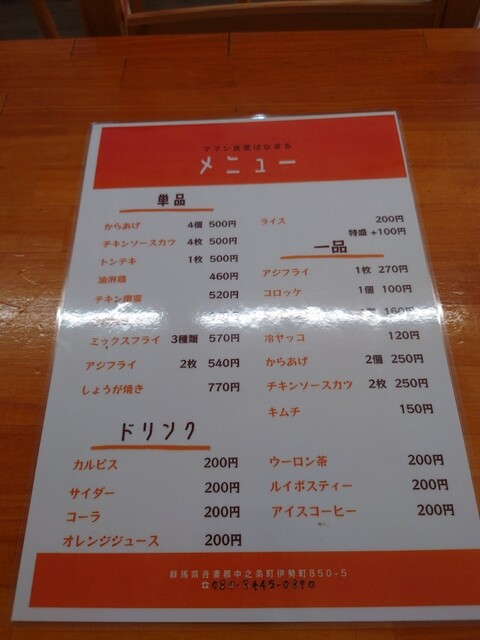 ママン食堂はなまる
メニュー
単品
からあげ 4個 500円
チキンソースカツ 4枚 500円
トンテキ 1枚 500円
油淋鶏 460円
チキン南蛮 520円
ミックスフライ 3種類 570円
アジフライ 2枚 540円
しょうが焼き 770円
ライス 200円
特盛 +100円
一品
アジフライ 1枚 270円
コロッケ 1個 100円
160円
冷ヤッコ 120円
からあげ 2個 250円
チキンソースカツ 2枚 250円
キムチ 150円
ドリンク
カルピス 200円
サイダー 200円
コーラ 200円
オレンジジュース 200円
ウーロン茶 200円
ルイボスティー 200円
アイスコーヒー 200円
群馬県吾妻郡中之条町伊勢町850-5